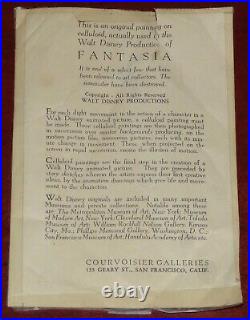 This is an original painting on
celluloid, actually used in the
Walt Disney Production of
FANTASIA
It is one of a select few that have
been released to art collectors. The
remainder have been destroyed.
Copyright - All Rights Reserved
WALT DISNEY PRODUCTIONS
For each slight movement in the action of a character in a
Walt Disney animated picture, a celluloid painting must
be made. These celluloid paintings are then photographed
in succession over scenic backgrounds producing on the
motion picture film, successive moving pictures, each with
its next stage of movement. These, when projected on the
screen in rapid succession, create the illusion of motion.
Celluloid paintings are the final step in the creation of a
Walt Disney animated picture. They are preceded by
story sketches wherein the artists express their first creative
ideas, by animation drawings which give life and move-
ment to the character.
Walt Disney originals are included in many important
Museums and private collections. Notable among these
are: The Metropolitan Museum of Art, New York; Museum
of Modern Art, New York; Cleveland Museum of Art; Toledo
Museum of Art; William Rockhill Nelson Gallery, Kansas
City, Mo.; Phillips Memorial Gallery, Washington, D. C.;
San Francisco Museum of Art; Honolulu Academy of Arts; etc.
COURVOISIER GALLERIES
133 GEARY ST., SAN FRANCISCO, CALIF.